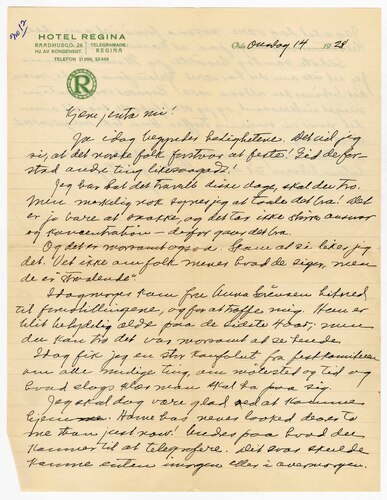 No 12
HOTEL REGINA
RAADHUSGD. 26
HJ. AV KONGENSGT.
TELEGRAMADR.:
REGINA
TELEFON 21 986, 23 446
R
Oslo onsdag 14 1928
Kjere jenta mi!
Ja idag begynder høitidelighetene. Det vil jeg
si, at det norske folk forstaar at feste! Gid de for-
stod andre ting likesaagodt!
Jeg har hat det travelt disse dage, skal du tro.
Men merkelig nok synes jeg at taale det bra! Det
er jo bare at snakke, og det tar ikke større ansvar
og koncentration – derfor gaar det bra.
Og det er morsomt ogsaa. Gram at se likes jeg
det. Vet ikke om folk mener hvad de siger, men
de er "straalende".
Idag morges kom fru Anna Sörensen hitned
til forestillingene, og for at treffe mig. Hun er
blit betydelig ældre paa de sidste aar; men
du kan tro det var morsomt at se hende.
Idag fik jeg en stor konvolut fra festkomiteen
om alle mulige ting, om møtested og tid og
hvad slags klær man skal ha paa sig.
Jeg skal dog være glad ved at komme
hjem. Home has never looked dearer to
me than just now! Undres paa hvad du
kommer til at telegrafere. Dit svar skulde
komme enten imorgen eller iovermorgen.